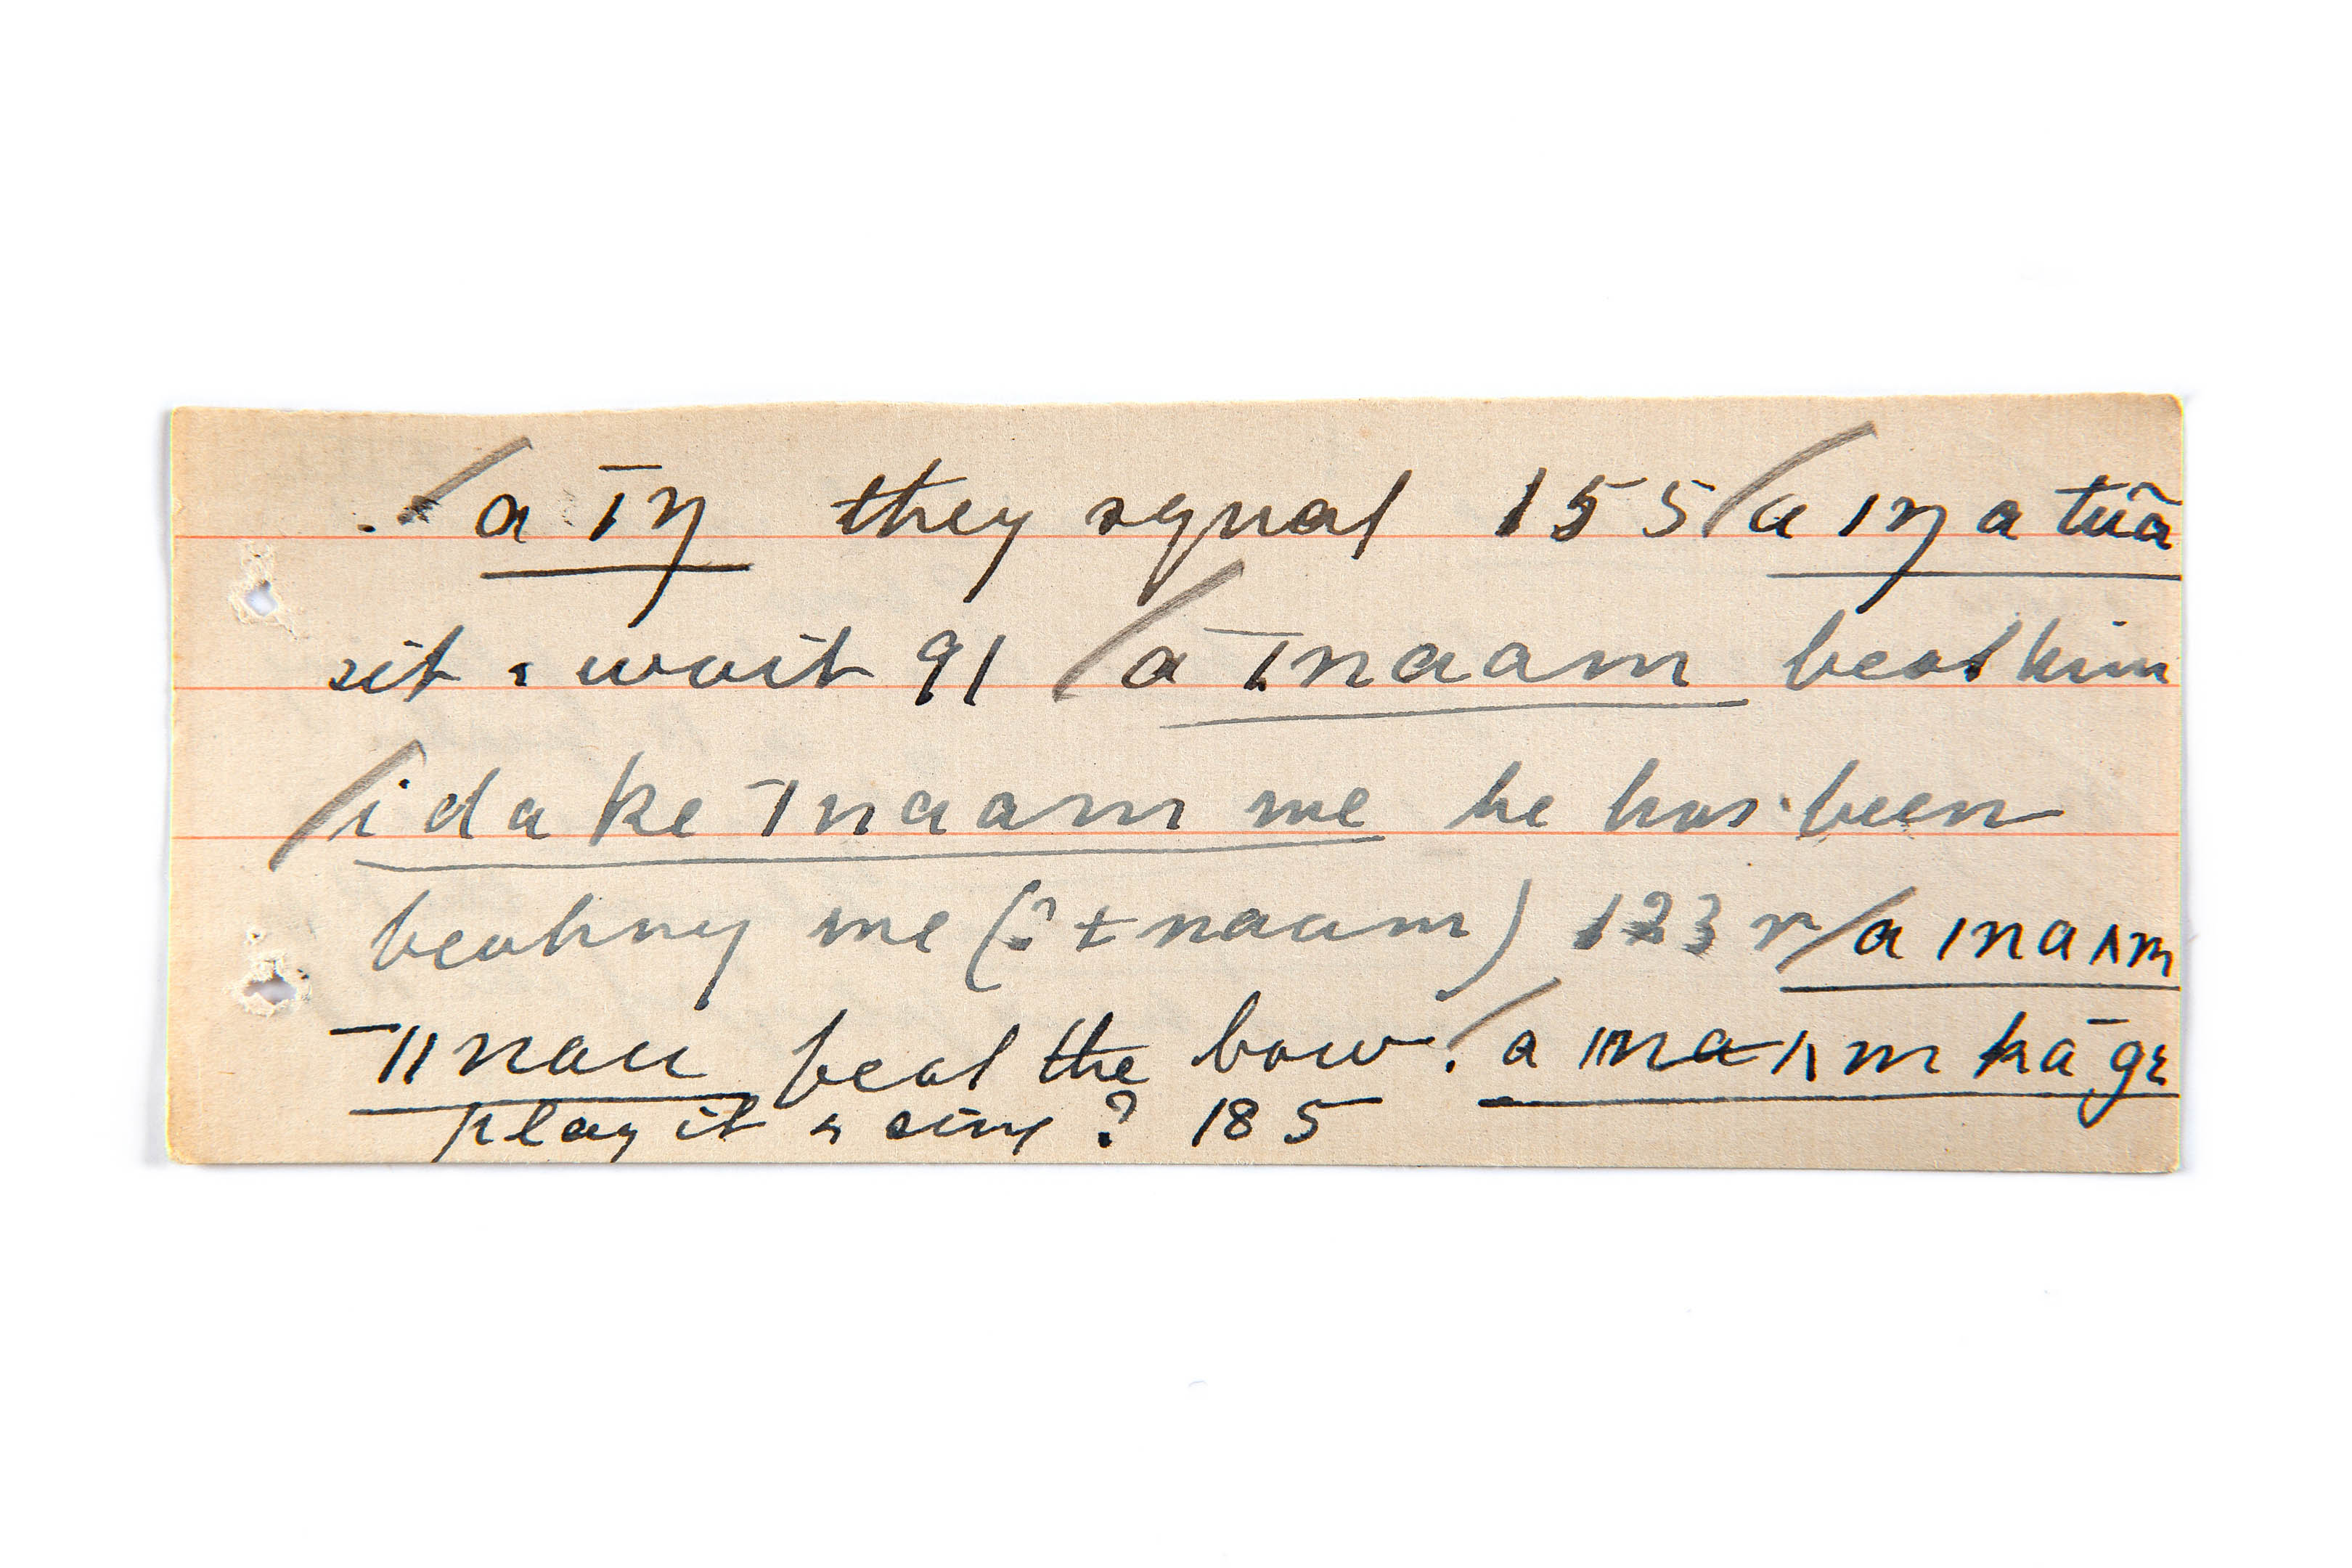 . / a īŋ they squat 155 / a ıŋ a tuã
sit & wait 91 / a īnaam beat him
/ i da ke īnaam me he has been
beating me (? ɨ naam) 123 r / a ına ʌm
ˉıı nau beat the bow. / a ına ʌm kā gɛ
play it & sing ? 185